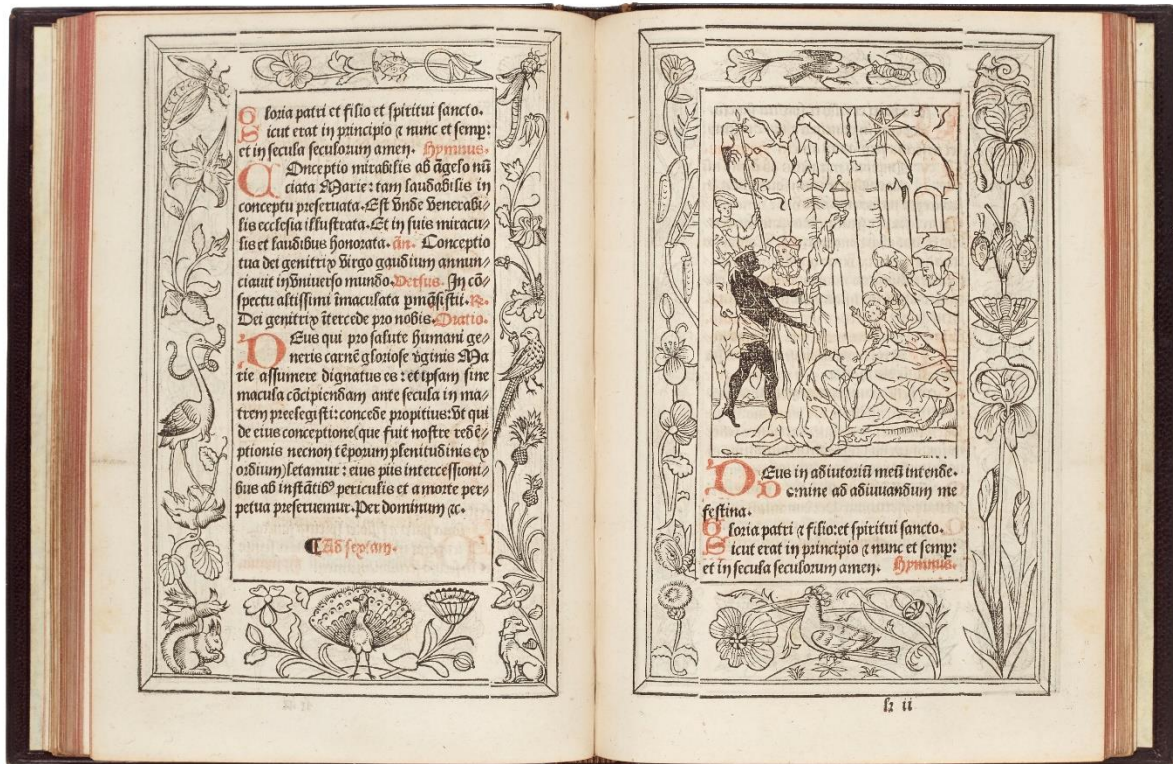 Gloria patri et filio et spiritui sancto.
Sicut erat in principio ⁊ nunc et semp̄:
et in secula seculorum amen. Hymnus.
COnceptio mirabilis ab āgelo nū
ciata Marie: tam laudabilis in
conceptu preseruata. Est vnde venerabi/
lis ecclesia illustrata. Et in suis miracu/
lis et laudibus honorata. ān. Conceptio
tua dei genitrix virgo gaudium annun/
ciauit in vniuerso mundo. Versus. In cō/
spectu altissimi īmaculata pmāsisti. R.
Dei genitrix ītercede pro nobis. Oratio.
DEus qui pro salute humani ge/
neris carnē gloriose v̄ginis Ma
rie assumere dignatus es: et ipsam sine
macula cōcipiendam ante secula in ma/
trem preelegisti: concede propitius: vt qui
de eius conceptione (que fuit nostre redē/
ptionis necnon tēporum plenitudinis ex
ordium) letamur: eius piis intercessioni/
bus ab instātibꝰ periculis et a morte per/
petua preseruemur. Per dominum ⁊c.
¶ Ad sextam.
DEus in adiutoriū meū intende.
Domine ad adiuuandum me
festina.
Gloria patri ⁊ filio: et spiritui sancto.
Sicut erat in principio ⁊ nunc et semp̄:
et in secula seculorum amen. Hymnus.
h ii